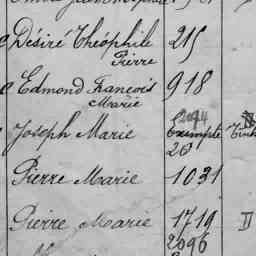 Désiré Théophile 215
Pierre
Edmond François 918
Marie
Joseph Marie exempté
20
Pierre Marie 1031
Pierre Marie 1719 II
2096